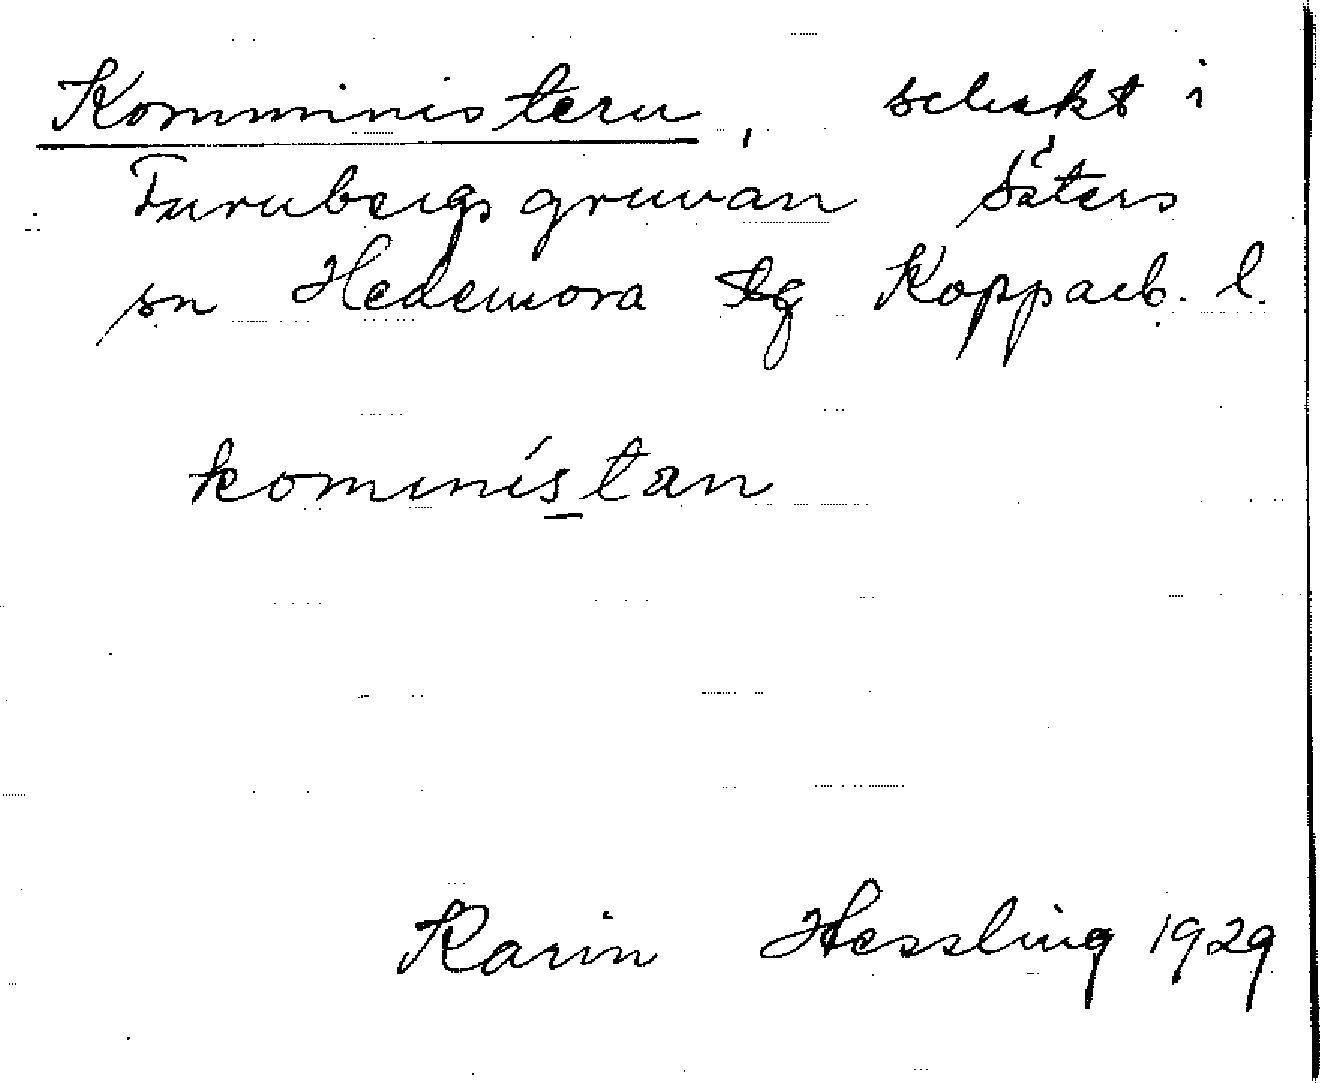 Komministern, schakt i
Turubergsgruvan Säters
sn Hedemora tg Kopparb. l.
kommístan
Karin Hessling 1929